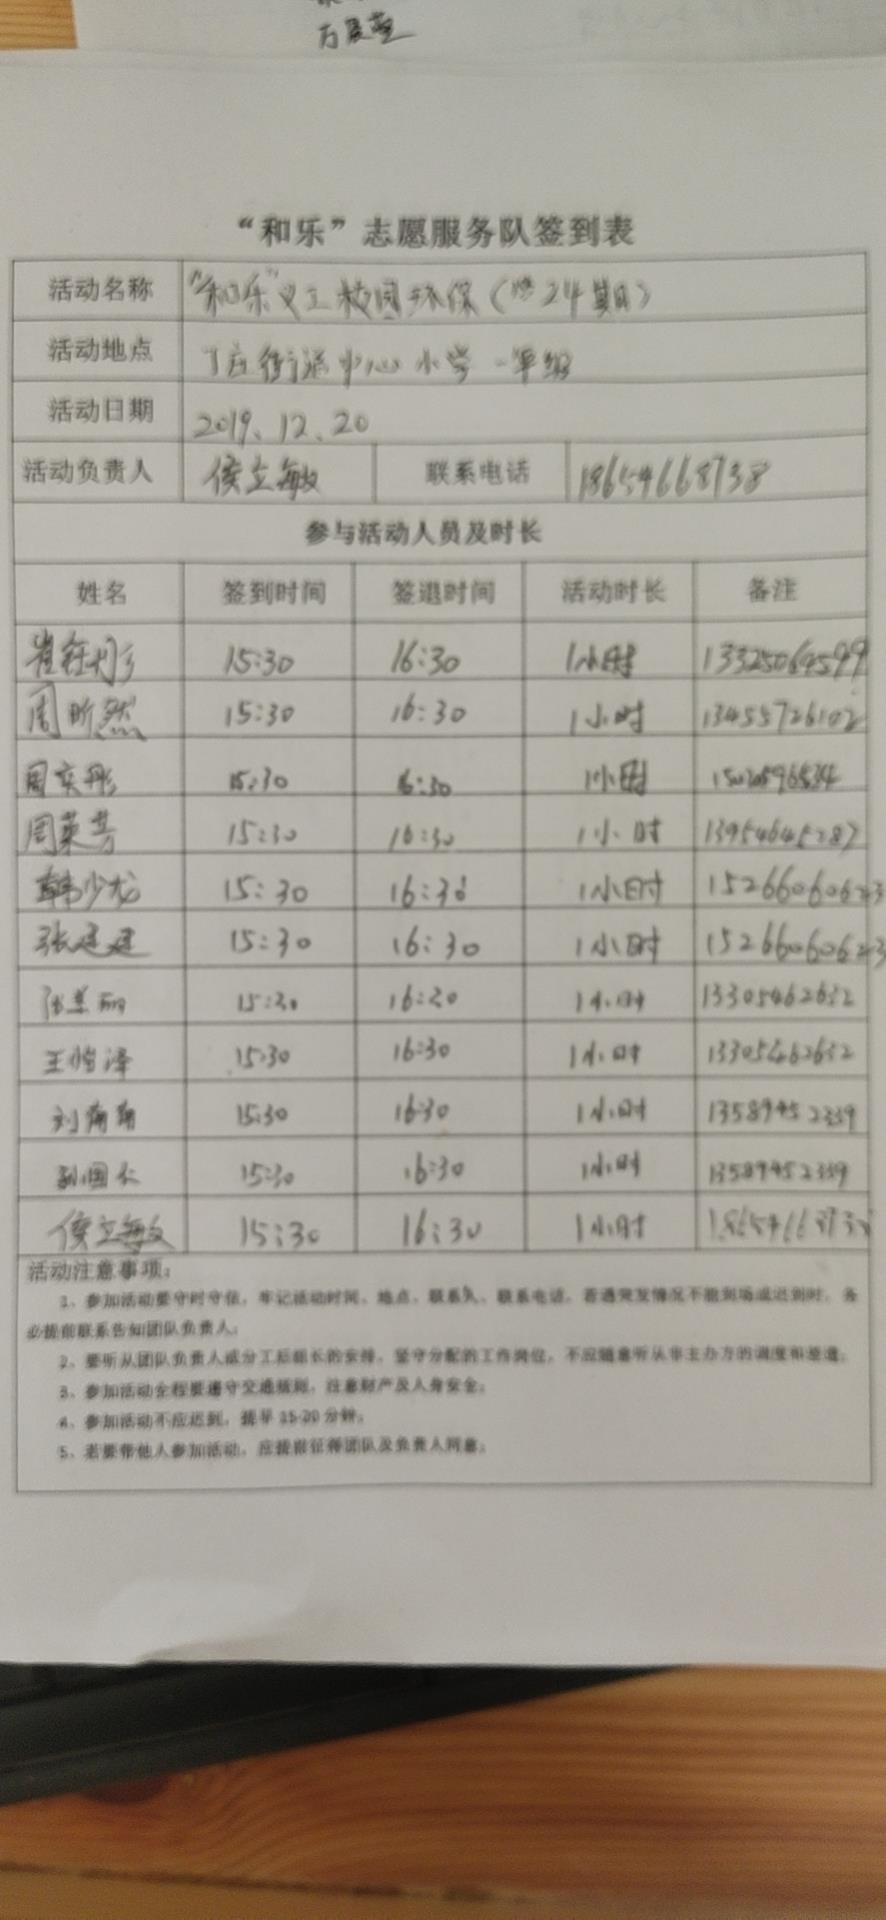 “和乐”志愿服务队签到表
活动名称 “和乐”义工校园环保(第24期)
活动地点 丁庄街道中心小学一年级
活动日期 2019.12.20
活动负责人 侯立敏 联系电话 18654668738
参与活动人员及时长
姓名 签到时间 签退时间 活动时长 备注
15:30 16:30 1小时 13325064599
周昕然 15:30 16:30 1小时 13455726102
周奕彤 15:30 16:30 1小时
周英芳 15:30 16:30 1小时 13954645287
韩少龙 15:30 16:30 1小时 15266060623
张建建 15:30 16:30 1小时 15266060623
张慧丽 15:30 16:30 1小时 13305462632
15:30 16:30 1小时 13305462632
15:30 16:30 1小时 13589452339
孙国仁 15:30 16:30 1小时 13589452339
侯立敏 15:30 16:30 1小时 18654668738
活动注意事项:
1、参加活动要守时守信,牢记活动时间、地点、联系人、联系电话,若遇突发情况不能到场或迟到时,务
必提前联系告知团队负责人;
2、要听从团队负责人或分工后组长的安排,坚守分配的工作岗位,不应随意听从非主办方的调度和差遣;
3、参加活动全程要遵守交通规则,注意财产及人身安全;
4、参加活动不应迟到,提早15-20分钟;
5、若要带他人参加活动,应提前征得团队及负责人同意;